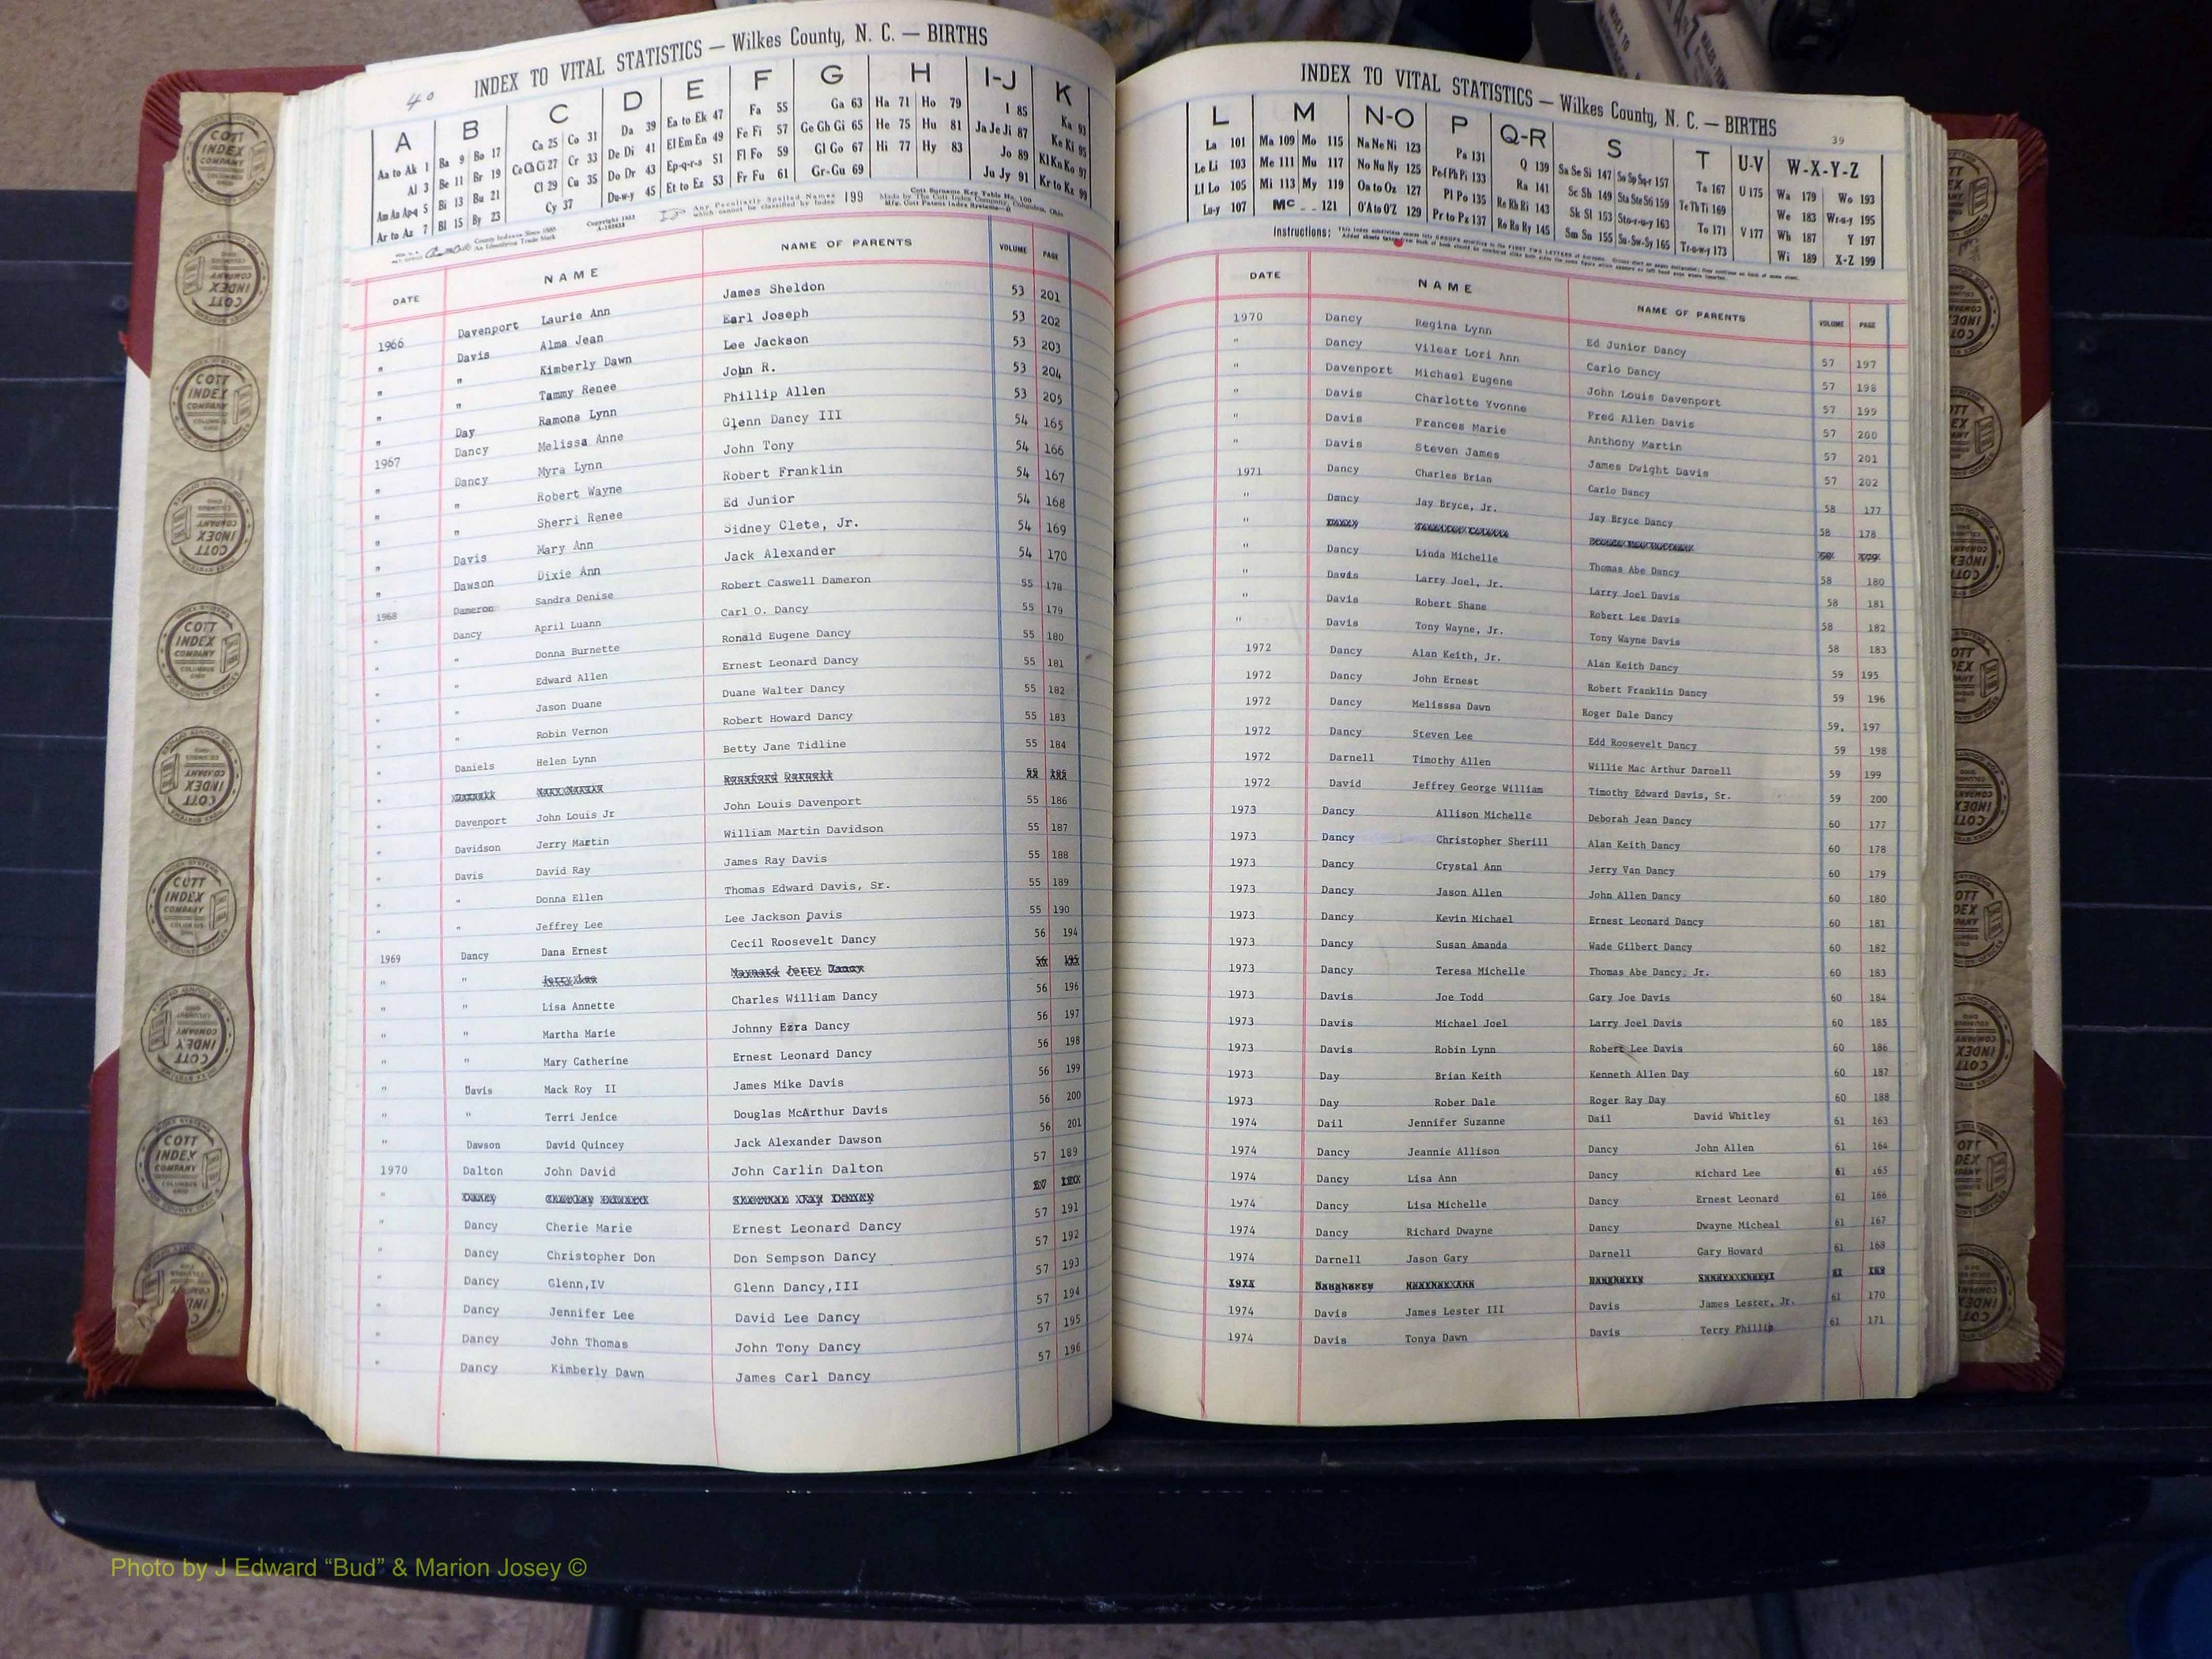 40
INDEX TO VITAL STATISTICS — Wilkes County, N. C. — BIRTHS
A B C D E F G H I-J K
Aa to Ak 1 Ba 9 Bo 17 Ca 25 Co 31 Da 39 Ea to Ek 47 Fa 55 Ga 63 Ha 71 Ho 79 I 85 Ka 93
Al 3 Be 11 Br 19 Ce Ch Ci 27 Cr 33 De Di 41 El Em En 49 Fe Fi 57 Ge Gh Gi 65 He 75 Hu 81 Ja Je Ji 87 Ke Ki 95
Am An Ap-q 5 Bi 13 Bu 21 Cl 29 Cu 35 Do Dr 43 Ep-q-r-s 51 Fl Fo 59 Gl Go 67 Hi 77 Hy 83 Jo 89 Kl Kn Ko 97
Ar to Az 7 Bl 15 By 23 Cy 37 Du-w-y 45 Et to Ez 53 Fr Fu 61 Gr-Gu 69 Ju Jy 91 Kr to Kz 99
Any Peculiarly Spelled Names which cannot be classified by Index 199
DATE NAME NAME OF PARENTS VOLUME PAGE
1966 Davenport Laurie Ann James Sheldon 53 201
" Davis Alma Jean Earl Joseph 53 202
" " Kimberly Dawn Lee Jackson 53 203
" " Tammy Renee John R. 53 204
" Day Ramona Lynn Phillip Allen 53 205
1967 Dancy Melissa Anne Glenn Dancy III 54 165
" Dancy Myra Lynn John Tony 54 166
" " Robert Wayne Robert Franklin 54 167
" " Sherri Renee Ed Junior 54 168
" Davis Mary Ann Sidney Clete, Jr. 54 169
" Dawson Dixie Ann Jack Alexander 54 170
1968 Dameron Sandra Denise Robert Caswell Dameron 55 178
" Dancy April Luann Carl O. Dancy 55 179
" " Donna Burnette Ronald Eugene Dancy 55 180
" " Edward Allen Ernest Leonard Dancy 55 181
" " Jason Duane Duane Walter Dancy 55 182
" " Robin Vernon Robert Howard Dancy 55 183
" Daniels Helen Lynn Betty Jane Tidline 55 184
" Darnell
" Davenport John Louis Jr John Louis Davenport 55 186
" Davidson Jerry Martin William Martin Davidson 55 187
" Davis David Ray James Ray Davis 55 188
" " Donna Ellen Thomas Edward Davis, Sr. 55 189
" " Jeffrey Lee Lee Jackson Davis 55 190
1969 Dancy Dana Ernest Cecil Roosevelt Dancy 56 194
" " Jerry Lee Maynard Jerry Dancy 56 195
" " Lisa Annette Charles William Dancy 56 196
" " Martha Marie Johnny Ezra Dancy 56 197
" " Mary Catherine Ernest Leonard Dancy 56 198
" Davis Mack Roy II James Mike Davis 56 199
" " Terri Jenice Douglas McArthur Davis 56 200
" Dawson David Quincey Jack Alexander Dawson 56 201
1970 Dalton John David John Carlin Dalton 57 189
" Dancy
" Dancy Cherie Marie Ernest Leonard Dancy 57 191
" Dancy Christopher Don Don Sempson Dancy 57 192
" Dancy Glenn,IV Glenn Dancy,III 57 193
" Dancy Jennifer Lee David Lee Dancy 57 194
" Dancy John Thomas John Tony Dancy 57 195
" Dancy Kimberly Dawn James Carl Dancy 57 196
INDEX TO VITAL STATISTICS — Wilkes County, N. C. — BIRTHS
39
L M N-O P Q-R S T U-V W-X-Y-Z
La 101 Ma 109 Mo 115 Na Ne Ni 123 Pa 131 Q 139 Sa Se Si 147 Sn Sp Sq-r 157 Ta 167 U 175 Wa 179 Wo 193
Le Li 103 Me 111 Mu 117 No Nu Ny 125 Pe-f Ph Pi 133 Ra 141 Sc Sh 149 Sta Ste Sti 159 Te Th Ti 169 We 183 Wr-u-y 195
Ll Lo 105 Mi 113 My 119 Oa to Oz 127 Pl Po 135 Re Rh Ri 143 Sk Sl 153 Sto-r-u-y 163 To 171 V 177 Wh 187 Y 197
Lu-y 107 Mc 121 O'A to O'Z 129 Pr to Pz 137 Ro Ru Ry 145 Sm Sn 155 Su-Sw-Sy 165 Tr-u-w-y 173 Wi 189 X-Z 199
Instructions:
DATE NAME NAME OF PARENTS VOLUME PAGE
1970 Dancy Regina Lynn Ed Junior Dancy 57 197
" Dancy Vilear Lori Ann Carlo Dancy 57 198
" Davenport Michael Eugene John Louis Davenport 57 199
" Davis Charlotte Yvonne Fred Allen Davis 57 200
" Davis Frances Marie Anthony Martin 57 201
" Davis Steven James James Dwight Davis 57 202
1971 Dancy Charles Brian Carlo Dancy 58 177
" Dancy Jay Bryce, Jr. Jay Bryce Dancy 58 178
"
" Dancy Linda Michelle Thomas Abe Dancy 58 180
" Davis Larry Joel, Jr. Larry Joel Davis 58 181
" Davis Robert Shane Robert Lee Davis 58 182
" Davis Tony Wayne, Jr. Tony Wayne Davis 58 183
1972 Dancy Alan Keith, Jr. Alan Keith Dancy 59 195
1972 Dancy John Ernest Robert Franklin Dancy 59 196
1972 Dancy Melisssa Dawn Roger Dale Dancy 59, 197
1972 Dancy Steven Lee Edd Roosevelt Dancy 59 198
1972 Darnell Timothy Allen Willie Mac Arthur Darnell 59 199
1972 David Jeffrey George William Timothy Edward Davis, Sr. 59 200
1973 Dancy Allison Michelle Deborah Jean Dancy 60 177
1973 Dancy Christopher Sherill Alan Keith Dancy 60 178
1973 Dancy Crystal Ann Jerry Van Dancy 60 179
1973 Dancy Jason Allen John Allen Dancy 60 180
1973 Dancy Kevin Michael Ernest Leonard Dancy 60 181
1973 Dancy Susan Amanda Wade Gilbert Dancy 60 182
1973 Dancy Teresa Michelle Thomas Abe Dancy, Jr. 60 183
1973 Davis Joe Todd Gary Joe Davis 60 184
1973 Davis Michael Joel Larry Joel Davis 60 185
1973 Davis Robin Lynn Robert Lee Davis 60 186
1973 Day Brian Keith Kenneth Allen Day 60 187
1973 Day Rober Dale Roger Ray Day 60 188
1974 Dail Jennifer Suzanne Dail David Whitley 61 163
1974 Dancy Jeannie Allison Dancy John Allen 61 164
1974 Dancy Lisa Ann Dancy Richard Lee 61 165
1974 Dancy Lisa Michelle Dancy Ernest Leonard 61 166
1974 Dancy Richard Dwayne Dancy Dwayne Micheal 61 167
1974 Darnell Jason Gary Darnell Gary Howard 61 168
1974 Davis James Lester III Davis James Lester, Jr. 61 170
1974 Davis Tonya Dawn Davis Terry Phillip 61 171
COTT INDEX COMPANY COLUMBUS OHIO
Photo by J Edward “Bud” & Marion Josey ©